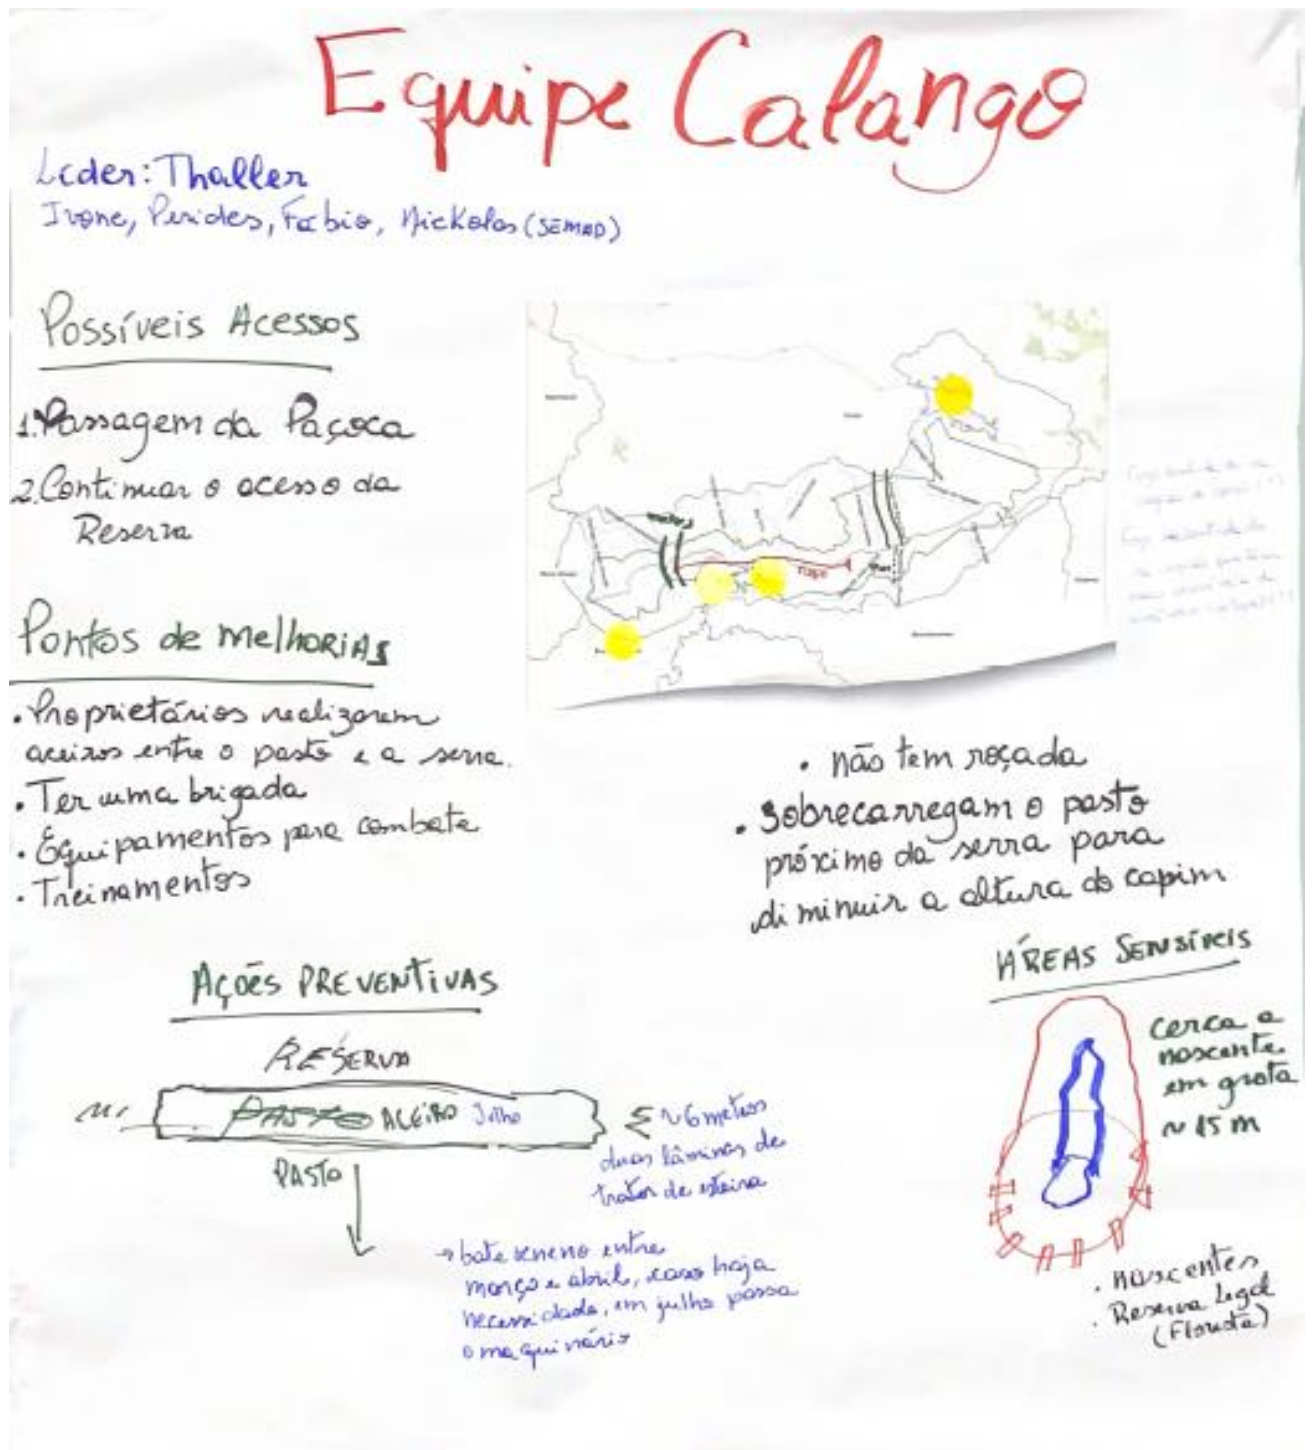 Equipe Calango
Líder: Thaller
Ivone, Perides, Fábio, Nickolas (SEMAD)
Possíveis Acessos
1. Passagem da Paçoca
2. Continuar o acesso da
Reserva
Pontos de melhorias
• Proprietários realizarem
aceiros entre o pasto e a serra.
• Ter uma brigada
• Equipamentos para combate
• Treinamentos
FOGO
• não tem roçada
• Sobrecarregam o pasto
próximo da serra para
diminuir a altura do capim
AÇÕES PREVENTIVAS
RESERVA
PASTO ACEIRO Julho
PASTO
~6 metros
duas lâminas de
trator de esteira
→ bate veneno entre
março e abril, caso haja
necessidade, em julho passa
o maquinário
ÁREAS SENSÍVEIS
cerca a
nascente
em grota
~ 15 m
• Nascentes
• Reserva Legal
(Floresta)